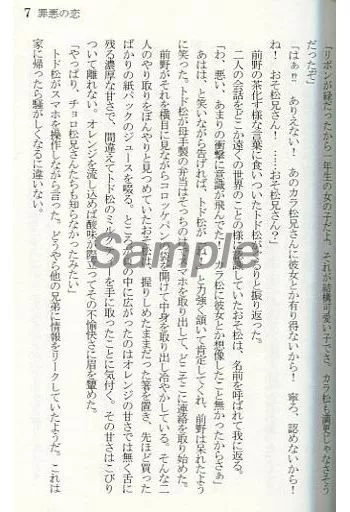 7 罪悪の恋
「リボンが緑だったから一年生の女の子だよ。それが結構可愛い子でさ、カラ松も満更じゃなさそう
だったぞ」
「はぁ!? ありえない! あのカラ松兄さんに彼女とか有り得ないから! 寧ろ、認めないから!
ね! おそ松兄さん! ……おそ松兄さんっ?」
前野の茶化す様な言葉に食いついたトド松が、
るりと振り返った。
二人の会話をどこか遠くの世界のことの様に
いたおそ松は、名前を呼ばれて我に返る。
「わ、悪い、あまりの衝撃に意識が飛んでた!
ラ松に彼女とか想像したこと無かったからさぁ」
あはは、と笑いながら告げれば、トド松が
と力強く頷いて肯定してくれ、前野は呆れたよう
に笑った。トド松が母手製の弁当はそっちの
スマホを取り出して、どこそこに連絡を取り始めた。
前野がそれを横目に見ながらコロッケパン
を開けて中身を取り出し冷やかしている。そんな二
人のやり取りをぼんやりと見つめていたおそ松
握りしめたままだった箸を置き、先ほど買った
ばかりの紙パックのジュースを啜る。ところが
の中に広がったのはオレンジの甘さでは無く舌に
残る濃厚な甘さで、間違えてトド松のミル
を手に取ったことに気付く。その甘さはこびり
ついて離れない。オレンジを流し込めば酸味が際
立ってその不愉快さに眉を顰めた。
「やっぱり、チョロ松兄さんたちも知らなかったみたい」
トド松がスマホを操作しながら言った。どうやら他の兄弟に情報をリークしていたようだ。これは
家に帰ったら騒がしくなるに違いない。
Sample